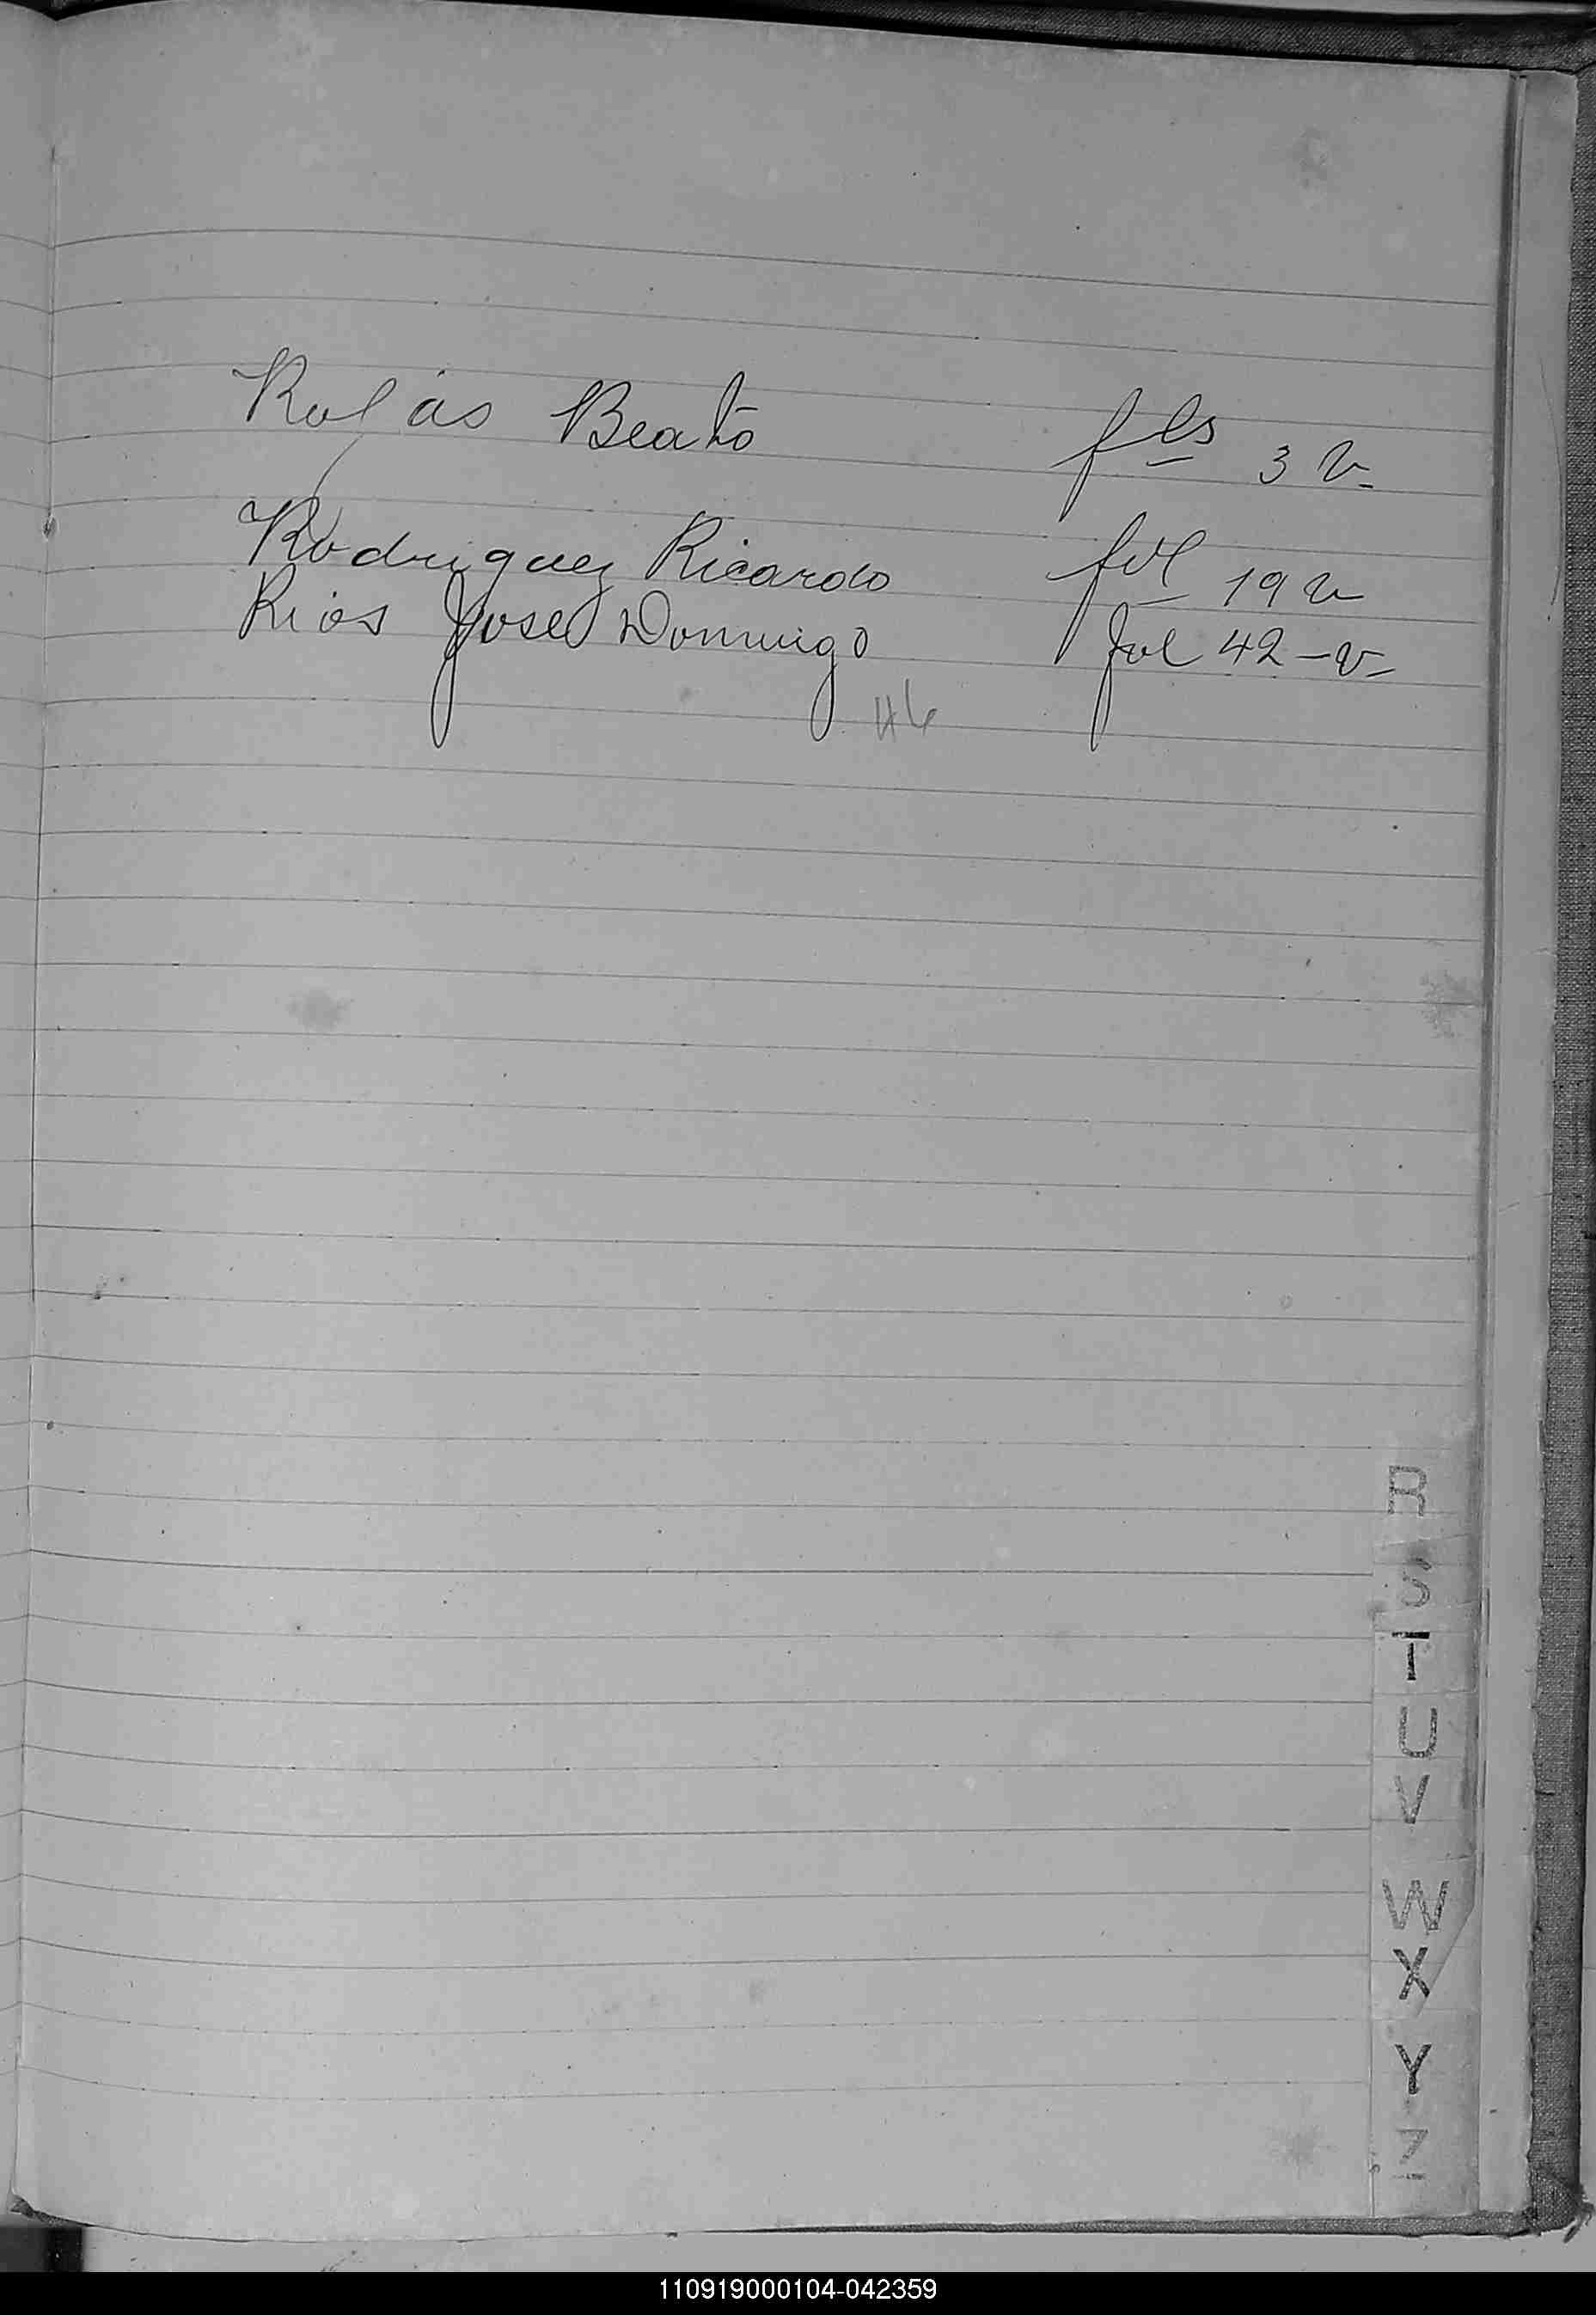 Rojas Beato fls 3 v.
Rodriguez Ricardo fol 19 v
Rios Jose Domingo fol 42-v-
46
R
S
T
U
V
W
X
Y
Z
110919000104-042359